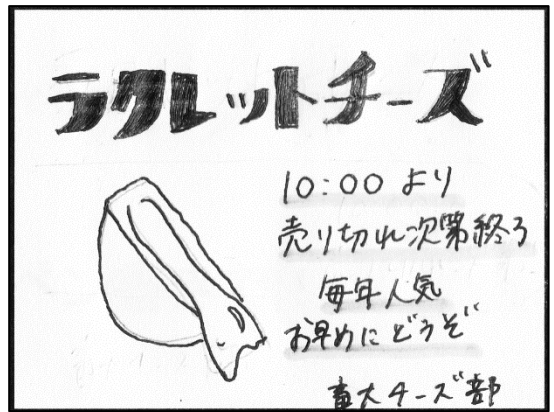 ラクレットチーズ
10:00 より
売り切れ次第終了
毎年人気
お早めにどうぞ
畜大チーズ部